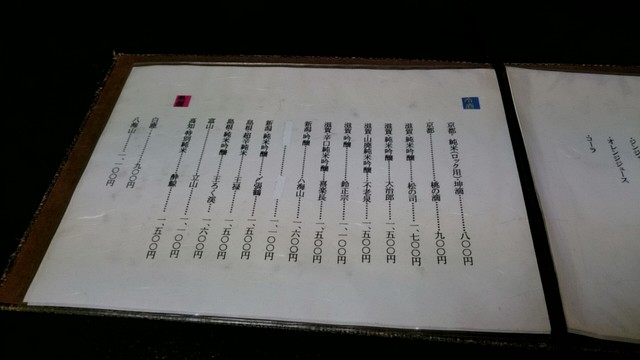 冷酒
京都・純米(ロック用)坤滴……一、八〇〇円
京都………桃の滴……九〇〇円
滋賀・純米吟醸……松の司……一、七〇〇円
滋賀・純米吟醸……大治郎……一、五〇〇円
滋賀・山廃純米吟醸…不老泉……一、五〇〇円
滋賀・吟醸………鈴正宗……一、一〇〇円
滋賀・辛口純米吟醸…喜楽長……一、五〇〇円
新潟・吟醸………八海山……一、六〇〇円
新潟・純米吟醸……〆張鶴……一、一〇〇円
島根・超辛純米……王禄……一、五〇〇円
島根・純米吟醸……王ろく 渓……一、六〇〇円
富山………立山……一、一〇〇円
高知・特別純米……酔鯨……一、五〇〇円
白鹿………九〇〇円
八海山………一、一〇〇円
オレンジジュース
コーラ